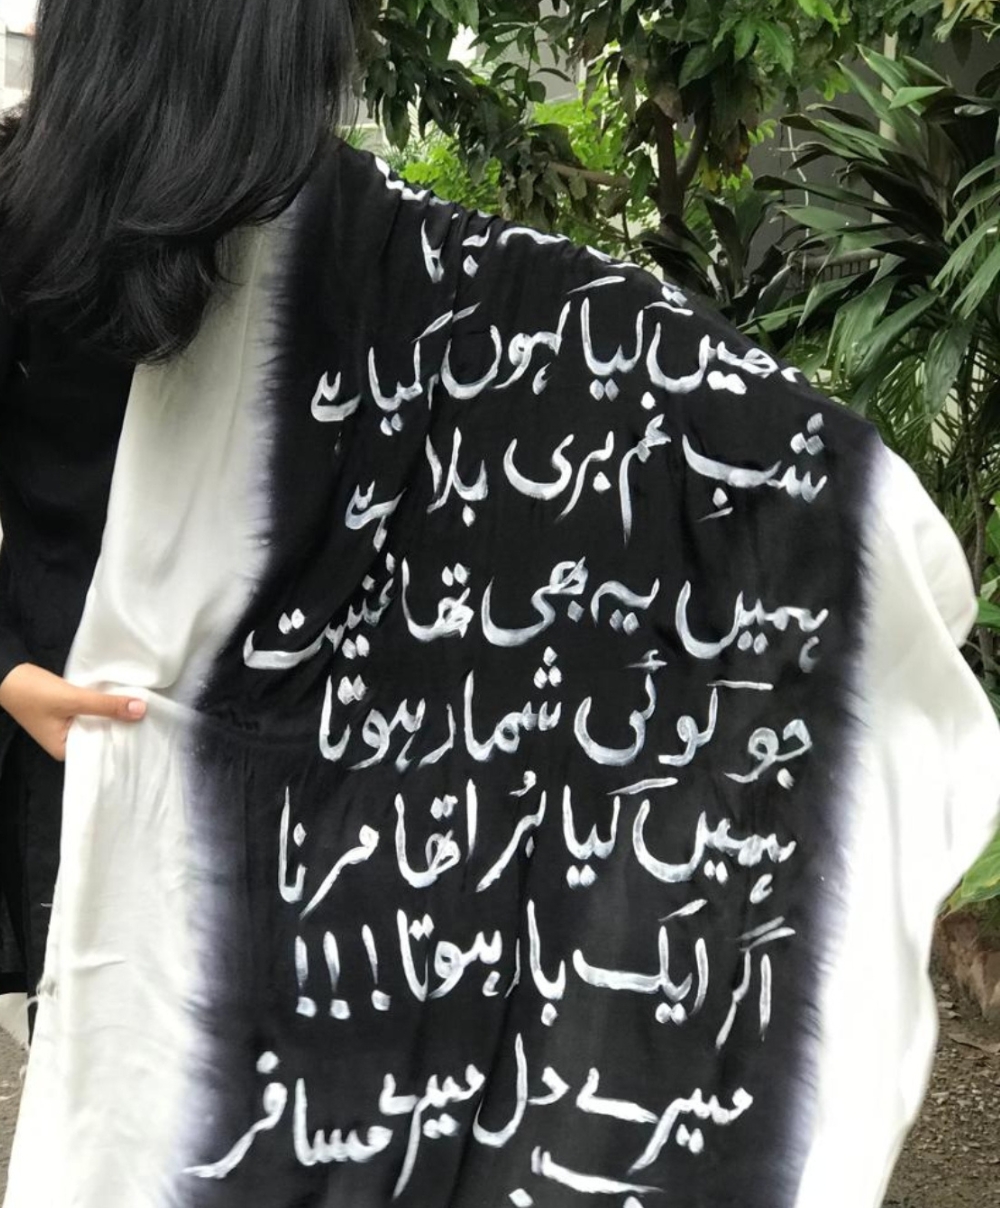 تمھیں کیا کہوں کہ کیا ہے
شبِ غم بری بلا ہے
ہمیں یہ بھی تھا غنیمت
جو کوئی شمار ہوتا
ہمیں کیا بُرا تھا مرنا
اگر ایک بار ہوتا!!!
میرے دل میرے مسافر